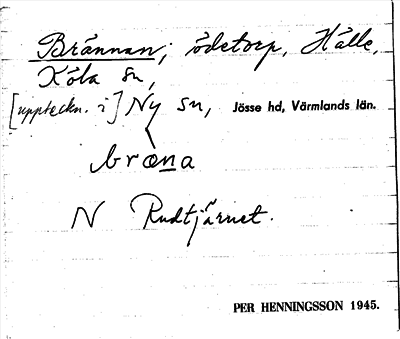 Brännan; ödetorp, Hålle,
Köla sn,
[uppteckn. i] Ny sn, Jösse hd, Värmlands län.
bræna
N Rudtjärnet.
PER HENNINGSSON 1945.